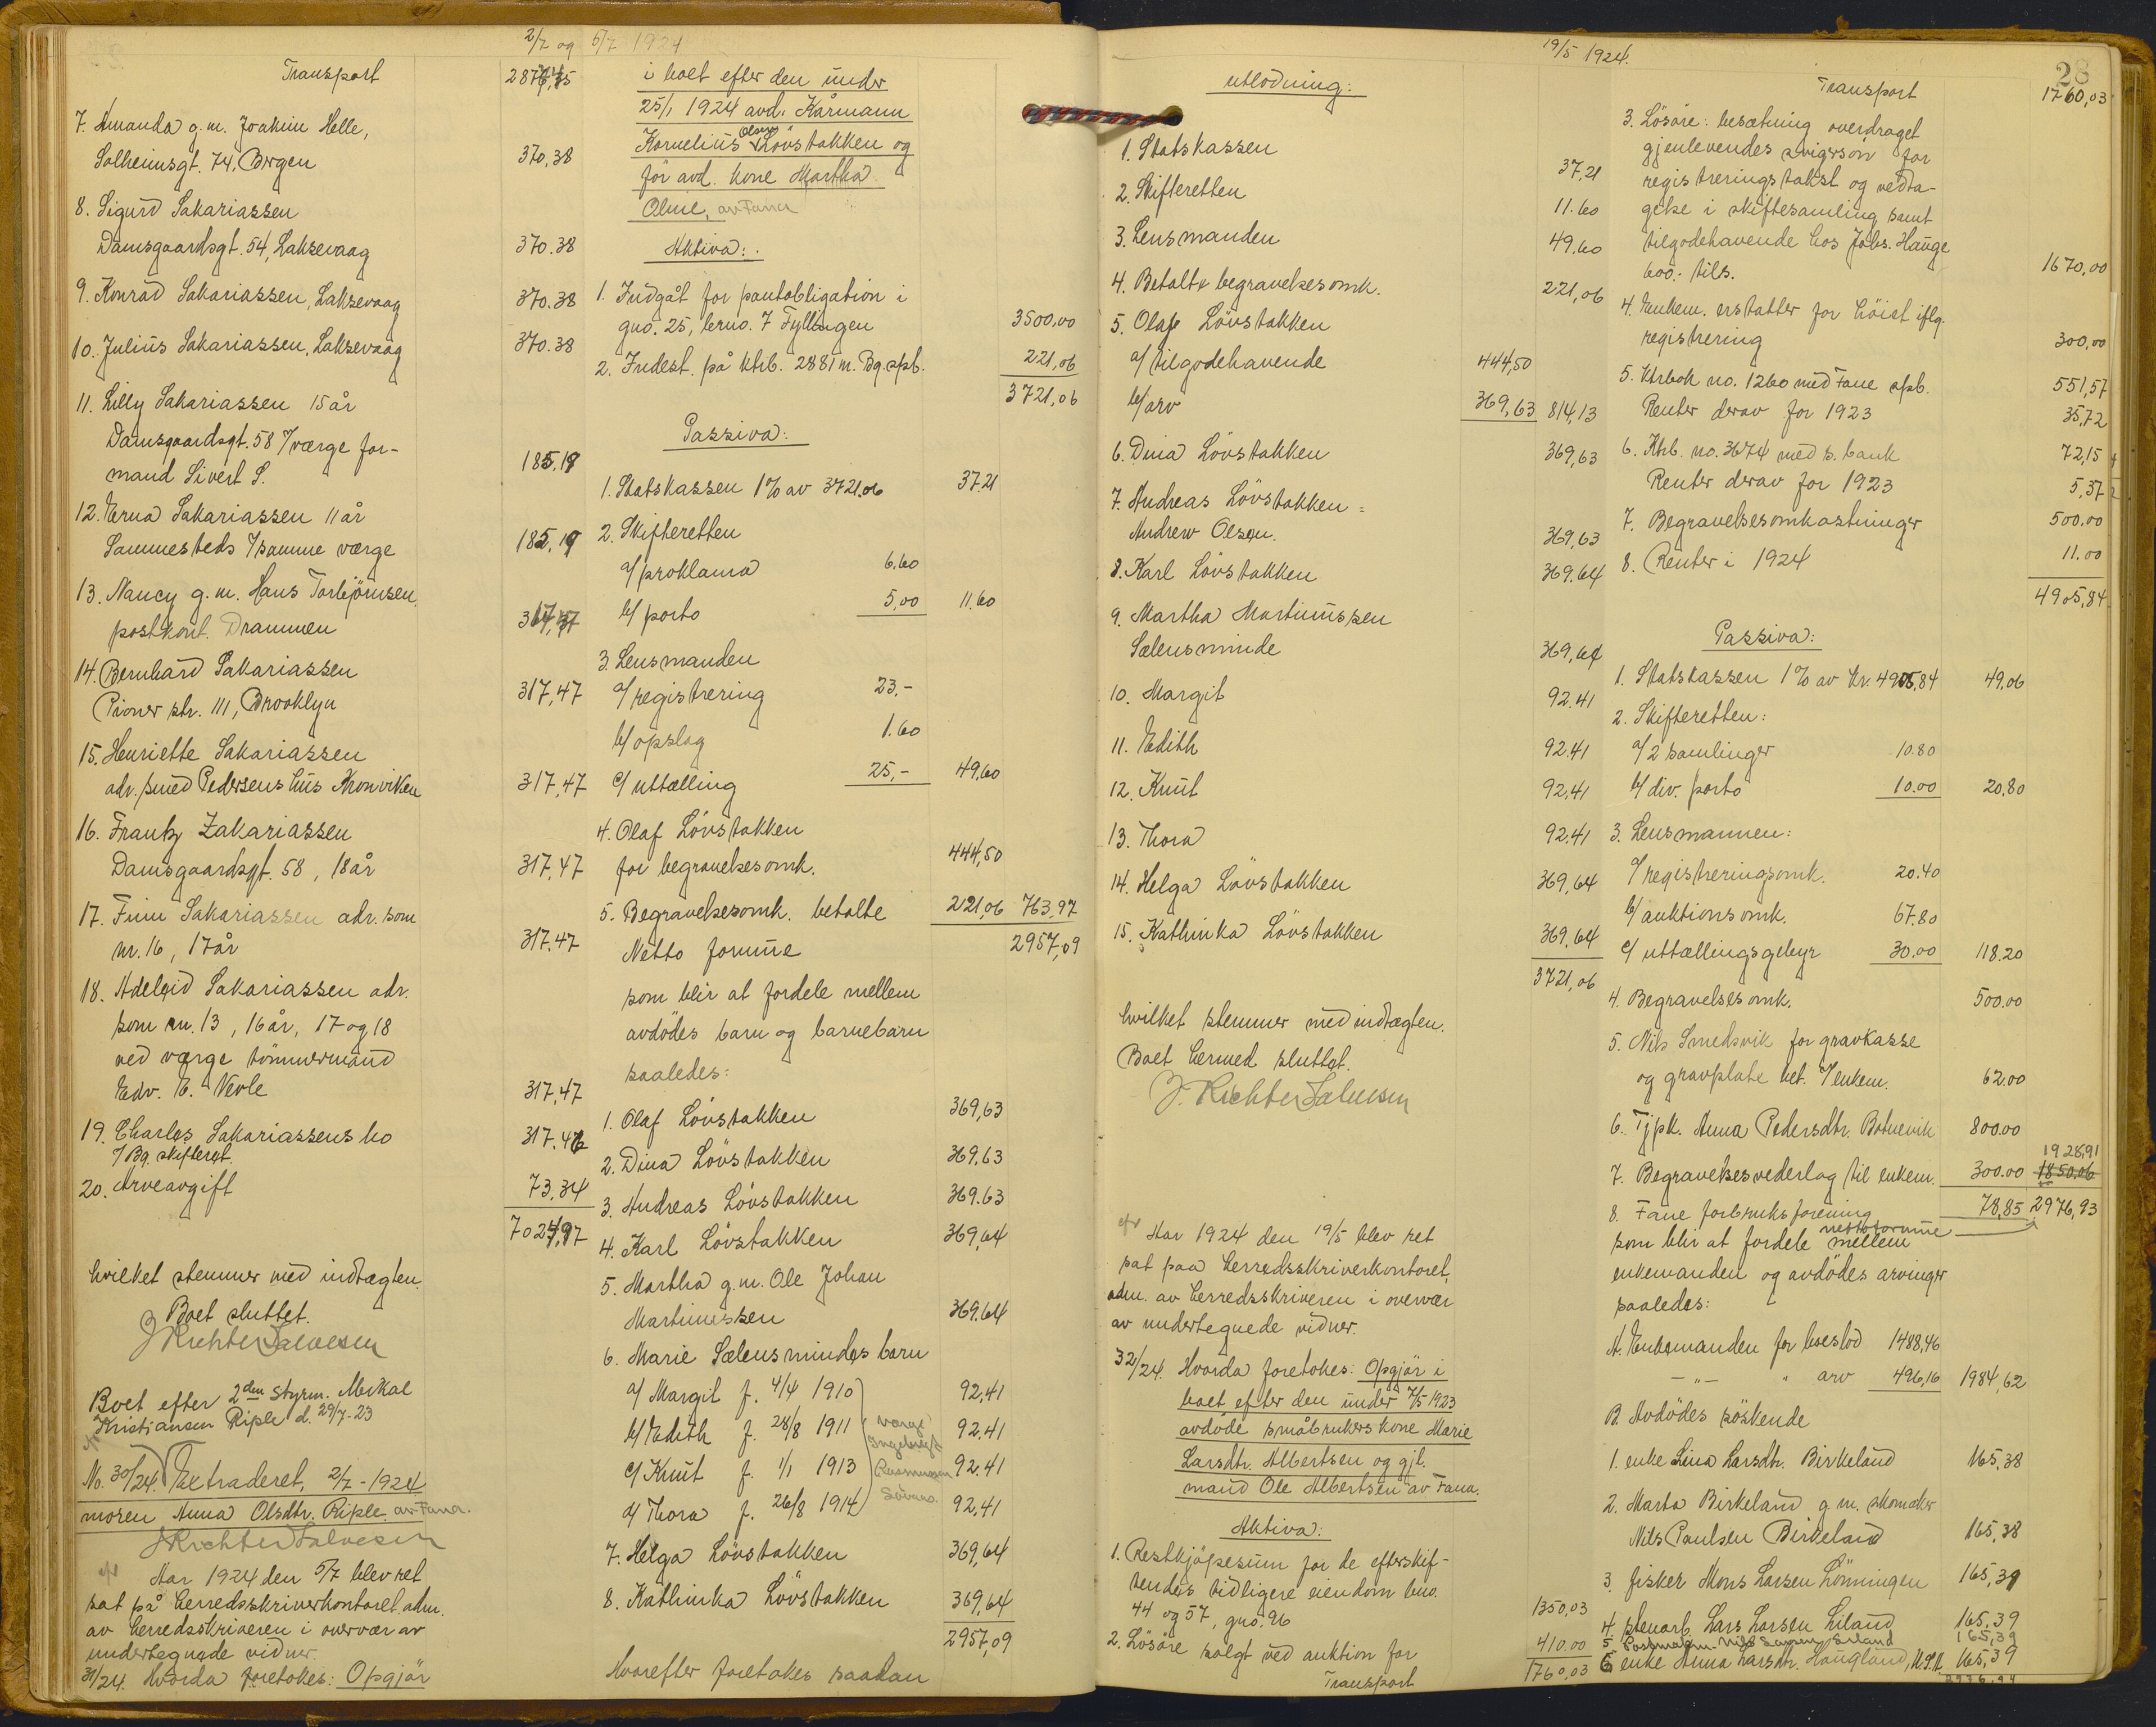 2/7 og 5/7 1924
Transport 2876,35
7. Amanda g.m. Joakim Helle,
Solheimsgt. 74, Bergen 370,38
8. Sigurd Sakariassen
Damsgaardsgt. 54, Laksevaag 370.38
9. Konrad Sakariassen, Laksevaag 370.38
10. Julius Sakariassen, Laksevaag 370.38
11. Lilly Sakariassen 15 år
Damsgaardsgt. 58 v/værge for-
mand Sivert S. 185.19
12. Erna Sakariassen 11 år
Sammesteds v/samme værge 185,19
13. Nancy g.m. Hans Torbjörnsen,
postkont. Drammen 317,47
14. Bernhard Sakariassen
Pioner str. 111, Brooklyn 317,47
15. Henriette Sakariassen
adr. smed Pedersens hus Kronviken 317,47
16. Frantz Zakariassen
Damsgaardsgt. 58, 18 år 317,47
17. Finn Sakariassen adr. som
nr. 16, 17 år 317,47
18. Adelgid Sakariassen adr.
som nr. 13, 16 år, 17 og 18
ved værge tömmermand
Edv. E. Nevle 317,47
19. Charles Sakariassens bo
v/ Bg. skifteret. 317,46
20. Arveavgift 73,34
7024,97
hvilket stemmer med indtægten.
Boet sluttet.
J Richter Salvesen
Boet efter 2den styrm. Mikal
Kristiansen Riple d. 29/7-23
No. 30/24. Extraderet, 2/7-1924
moren Anna Olsdtr. Riple av Fana.
J Richter Salvesen
Aar 1924 den 5/7 blev ret
sat på herredsskriverkontoret adm.
av herredsskriveren i overvær av
undertegnede vidner
31/24. Hvorda foretokes: Opgjör
i boet efter den under
25/1 1924 avd. Kårmann
Kornelius Olsen Lövstakken og
för avd. kone Martha
Oline, av Fana
Aktiva:
1. Indgåt for pantobligation i
gno. 25, brno. 7 Fyllingen 3500,00
2. Indest. på ktrb. 2881 m. Bg. spb. 221,06
3721,06
Passiva:
1. Statskassen 1% av 3721.06 37.21
2. Skifteretten
a/ proklama 6.60
b/ porto 5,00 11.60
3. Lensmanden
a/ registrering 23,-
b/ opslag 1.60
c/ uttælling 25,- 49.60
4. Olaf Lövstakken
for begravelsesomk. 444,50
5. Begravelsesomk. betalte 221,06 763,97
Netto formue 2957,09
som blir at fordele mellem
avdödes barn og barnebarn
saaledes:
1. Olaf Lövstakken 369,63
2. Dina Lövstakken 369,63
3. Andreas Lövstakken 369.63
4. Karl Lövstakken 369,64
5. Martha g.m. Ole Johan
Martinussen 369.64
6. Marie Sælensmindes barn
a/ Margit f. 4/4 1910 92,41
b/ Edith f. 28/8 1911 92.41
c/ Knut f. 1/1 1913 92.41
d/ Thora f. 26/8 1914 92,41
værge
Ingebrigt
Rasmussen
7. Helga Lövstakken 369,64
8. Kathinka Lövstakken 369,64
2957,09
Hvorefter foretokes saadan
19/5 1924.
28
utlodning:
1. Statskassen 37,21
2. Skifteretten 11.60
3. Lensmanden 49,60
4. Betalte begravelsesomk. 221,06
5. Olaf Lövstakken
a/ tilgodehavende 444,50
b/ arv 369,63 814,13
6. Dina Lövstakken 369,63
7. Andreas Lövstakken =
Andrew Olsen. 369,63
8. Karl Lövstakken 369.64
9. Martha Martinussen
Sælensminde 369,64
10. Margit 92.41
11. Edith 92.41
12. Knut 92,41
13. Thora 92.41
14. Helga Lövstakken 369,64
15. Kathinka Lövstakken 369,64
3721,06
hvilket stemmer med indtægten.
Boet hermed sluttet.
J. Richter Salvesen
Aar 1924 den 19/5 blev ret
sat paa herredsskriverkontoret,
adm. av herredsskriveren i overvær
av undertegnede vidner.
32/24. Hvorda foretokes: Opgjör i
boet efter den under 7/5 1923
avdöde småbrukers kone Marie
Larsdtr. Albertsen og gjl.
mand Ole Albertsen av Fana.
Aktiva:
1. Restkjöpesum for de efterskif-
tendes tidligere eiendom bno.
44 og 57, gno. 96 1350,03
2. Lösöre solgt ved auktion for 410.00
Transport 1760,03
Transport 1760,03
3. Lösöre: besætning overdraget
gjenlevendes svigersön for
registreringstakst og vedta-
gelse i skiftesamling samt
tilgodehavende hos Johs. Hauge
600: tils. 1670,00
4. Enkem. erstatter for höist iflg.
registrering 300,00
5. Ktrbok no. 1260 med Fane spb. 551,57
Renter derav for 1923 35,72
6. Ktrb. no. 3674 med s. bank 72,15
Renter derav for 1923 5,37
7. Begravelsesomkostninger 500.00
8. Renter i 1924 11.00
4905,84
Passiva:
1. Statskassen 1% av kr. 4905,84 49,06
2. Skifteretten:
a/ 2 samlinger 10.80
b/ div. porto 10.00 20,80
3. Lensmannen:
a/ registreringsomk. 20.40
b/ auktionsomk. 67.80
c/ uttællingsgebyr 30.00 118.20
4. Begravelsesomk. 500.00
5. Nils Smedsvik for gravkasse
og gravplate bet. v/ enkem. 62.00
6. Tjpk. Anna Pedersdtr. Botnevik 800.00
7. Begravelsesvederlag til enkem. 300.00 1850,06 1928,91
8. Fane forbruksforening 78,85 2976,93
nettoformue
som blir at fordele mellem
enkemanden og avdödes arvinger
saaledes:
A. Enkemanden for boeslod 1488,46
-"- " arv 496,16 1984,62
B. Avdödes söskende
1. enke Lina Larsdtr. Birkeland 165,38
2. Marta Birkeland g.m. skomaker
Nils Paulsen Birkeland 165,38
3. fisker Mons Larsen Lönningen 165,39
4. stenarb. Lars Larsen Liland 165,39
5 Postmann Nils Larsen Liland 165,39
6 enke Anna Larsdtr. Haugland, U.S.A. 165,39
2976,94